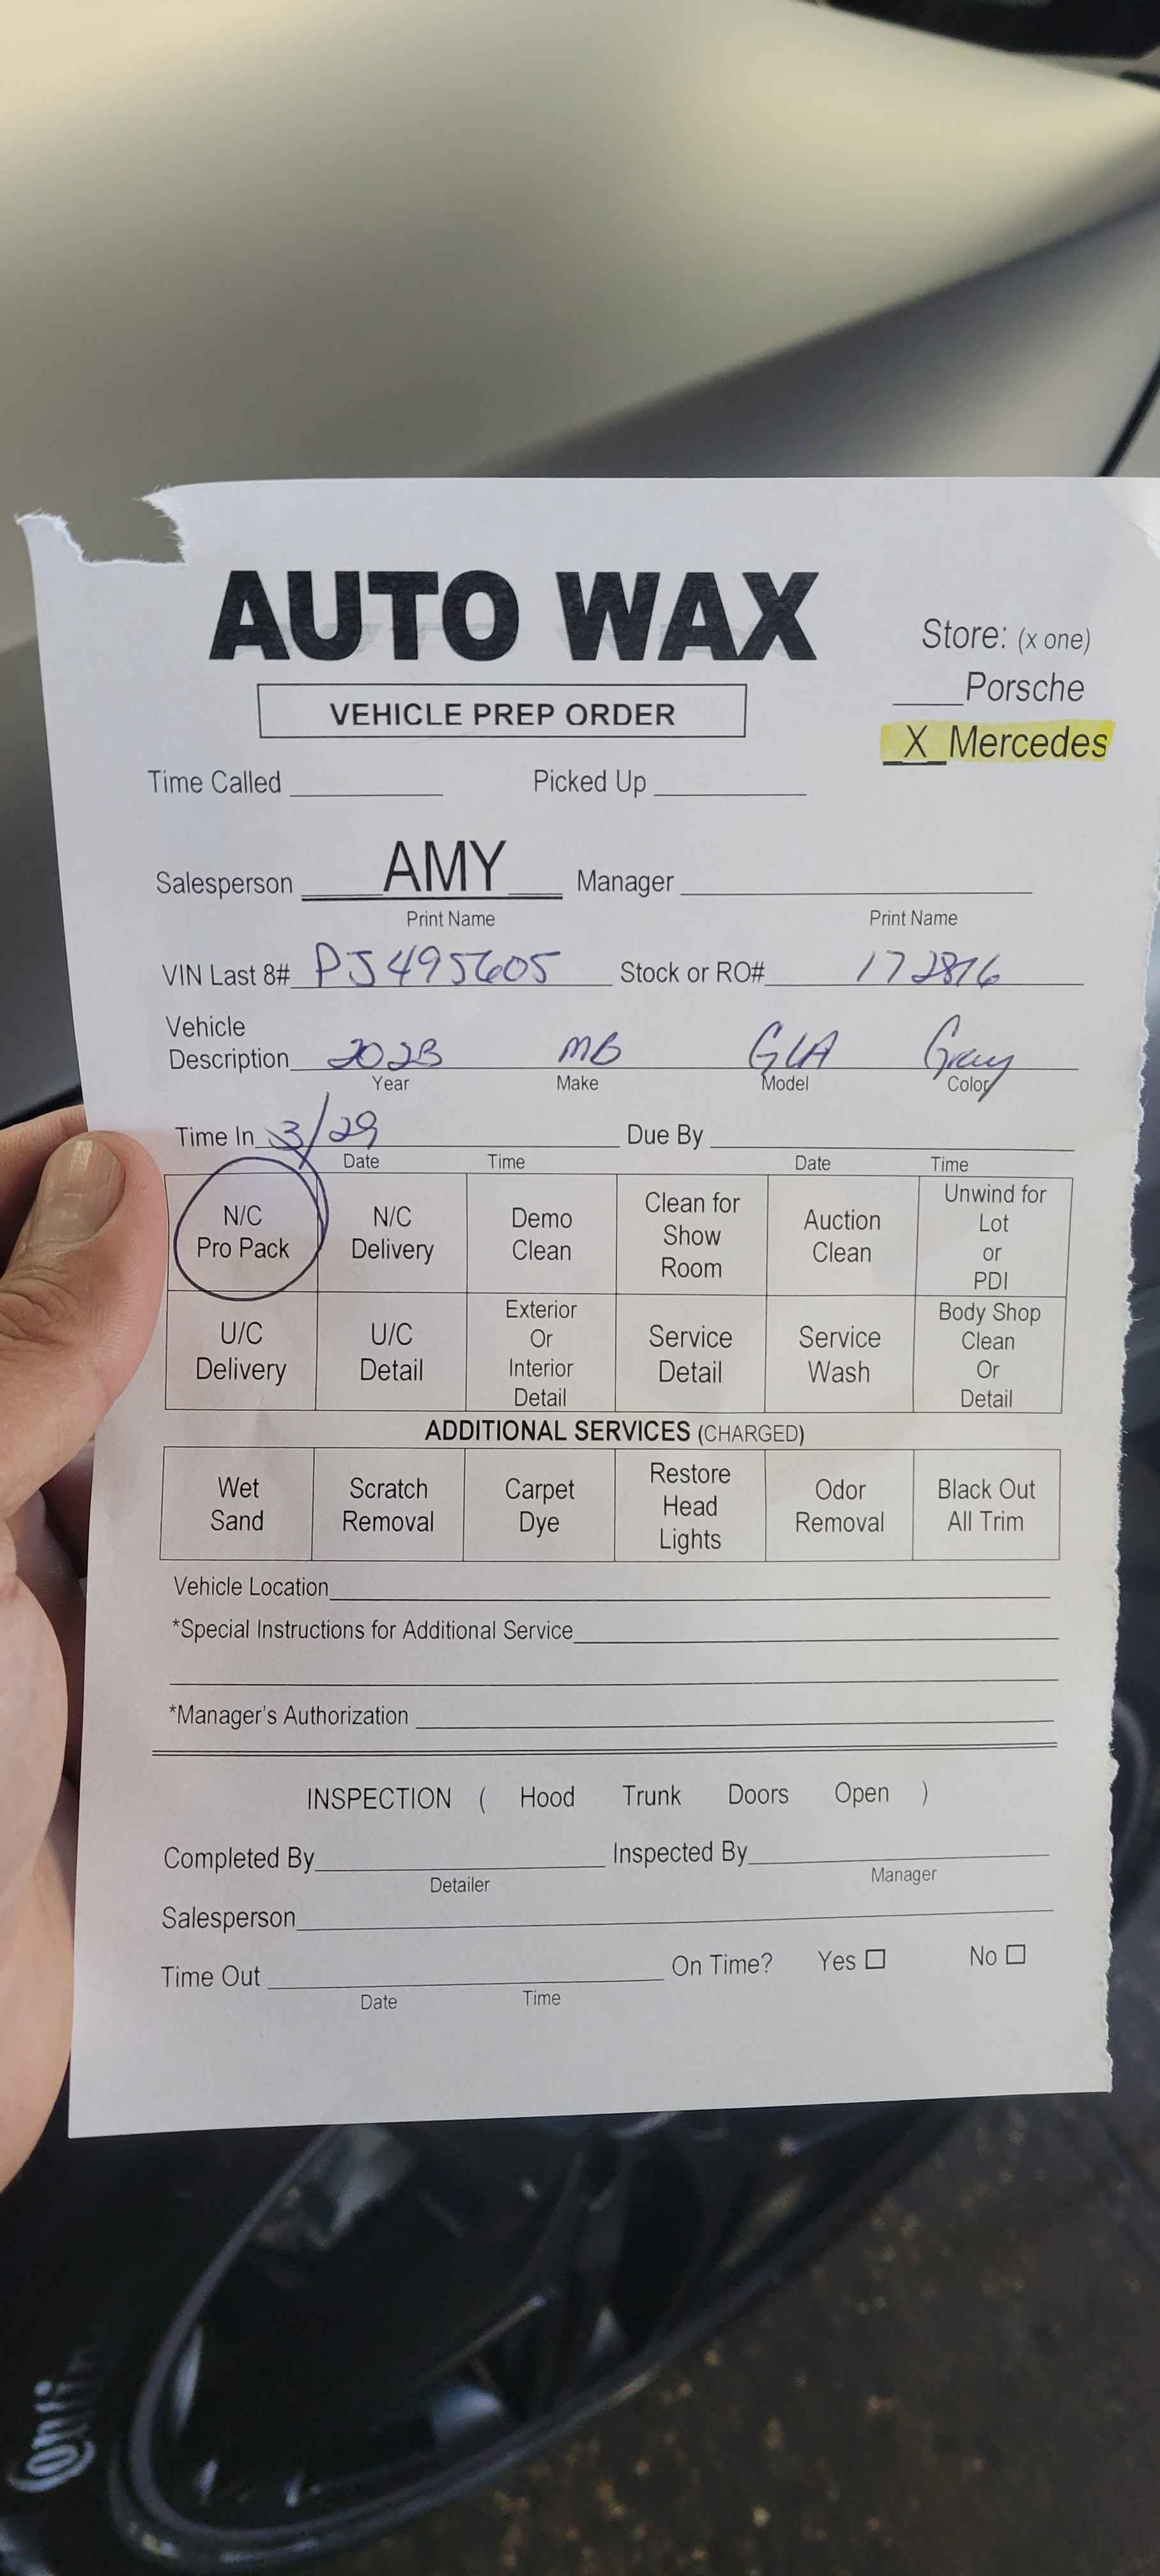 AUTO WAX
Store: (x one)
____Porsche
VEHICLE PREP ORDER
X Mercedes
Time Called Picked Up
Salesperson AMY Manager
Print Name Print Name
VIN Last 8# PJ495605 Stock or RO# 172816
Vehicle
Description 2023 MB GLA Gray
Year Make Model Color
Time In 3/29 Due By
Date Time Date Time
N/C Pro Pack
N/C Delivery
Demo Clean
Clean for Show Room
Auction Clean
Unwind for Lot or PDI
U/C Delivery
U/C Detail
Exterior Or Interior Detail
Service Detail
Service Wash
Body Shop Clean Or Detail
ADDITIONAL SERVICES (CHARGED)
Wet Sand
Scratch Removal
Carpet Dye
Restore Head Lights
Odor Removal
Black Out All Trim
Vehicle Location
*Special Instructions for Additional Service
*Manager's Authorization
INSPECTION ( Hood Trunk Doors Open )
Completed By Inspected By
Detailer Manager
Salesperson
Time Out On Time? Yes ☐ No ☐
Date Time